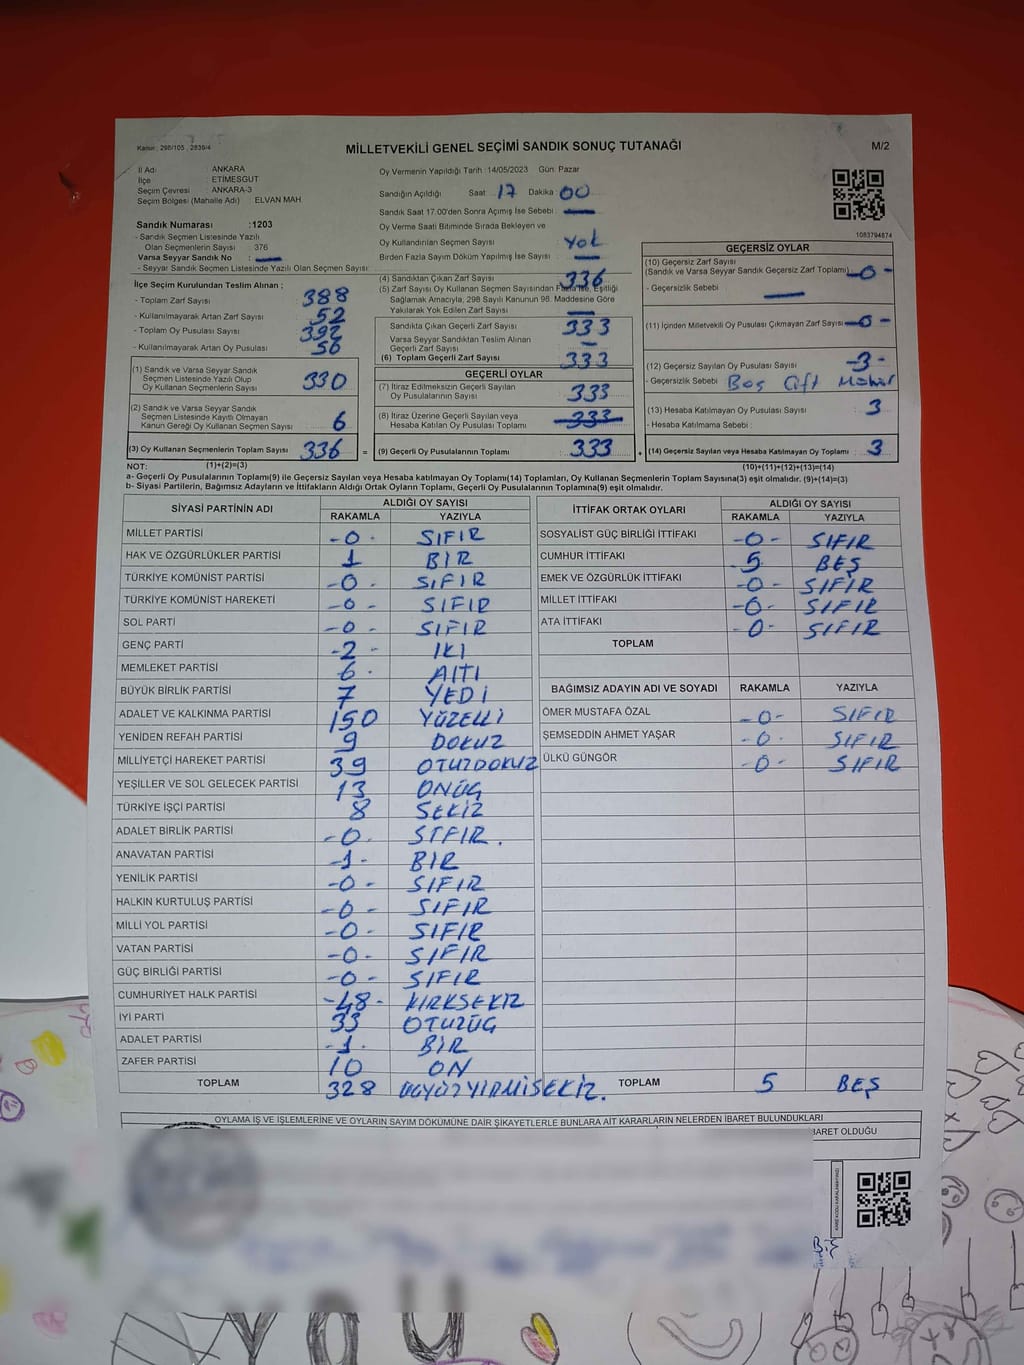 Kanun : 298/105 , 2839/4
MİLLETVEKİLİ GENEL SEÇİMİ SANDIK SONUÇ TUTANAĞI
M/2
İl Adı : ANKARA
İlçe : ETİMESGUT
Seçim Çevresi : ANKARA-3
Seçim Bölgesi (Mahalle Adı) ELVAN MAH
Sandık Numarası : 1203
- Sandık Seçmen Listesinde Yazılı
Olan Seçmenlerin Sayısı : 376
Varsa Seyyar Sandık No : —
- Seyyar Sandık Seçmen Listesinde Yazılı Olan Seçmen Sayısı:
İlçe Seçim Kurulundan Teslim Alınan ;
- Toplam Zarf Sayısı : 388
- Kullanılmayarak Artan Zarf Sayısı : 52
- Toplam Oy Pusulası Sayısı : 392
- Kullanılmayarak Artan Oy Pusulası : 56
(1) Sandık ve Varsa Seyyar Sandık
Seçmen Listesinde Yazılı Olup
Oy Kullanan Seçmenlerin Sayısı 330
(2) Sandık ve Varsa Seyyar Sandık
Seçmen Listesinde Kayıtlı Olmayan
Kanun Gereği Oy Kullanan Seçmen Sayısı 6
(3) Oy Kullanan Seçmenlerin Toplam Sayısı 336 =
Oy Vermenin Yapıldığı Tarih :14/05/2023 Gün: Pazar
Sandığın Açıldığı Saat : 17 Dakika : 00
Sandık Saat 17.00'den Sonra Açımış İse Sebebi : —
Oy Verme Saati Bitiminde Sırada Bekleyen ve
Oy Kullandırılan Seçmen Sayısı : Yok
Birden Fazla Sayım Döküm Yapılmış İse Sayısı : —
(4) Sandıktan Çıkan Zarf Sayısı : 336
(5) Zarf Sayısı Oy Kullanan Seçmen Sayısından Fazla ise, Eşitliği
Sağlamak Amacıyla, 298 Sayılı Kanunun 98. Maddesine Göre
Yakılarak Yok Edilen Zarf Sayısı : —
Sandıkta Çıkan Geçerli Zarf Sayısı : 333
Varsa Seyyar Sandıktan Teslim Alınan
Geçerli Zarf Sayısı : —
(6) Toplam Geçerli Zarf Sayısı : 333
GEÇERLİ OYLAR
(7) İtiraz Edilmeksizin Geçerli Sayılan
Oy Pusulalarının Sayısı : 333
(8) İtiraz Üzerine Geçerli Sayılan veya
Hesaba Katılan Oy Pusulası Toplamı : 333
(9) Geçerli Oy Pusulalarının Toplamı : 333 +
1083794874
GEÇERSİZ OYLAR
(10) Geçersiz Zarf Sayısı
(Sandık ve Varsa Seyyar Sandık Geçersiz Zarf Toplamı) -0-
- Geçersizlik Sebebi : —
(11) İçinden Milletvekili Oy Pusulası Çıkmayan Zarf Sayısı -0-
(12) Geçersiz Sayılan Oy Pusulası Sayısı : -3-
- Geçersizlik Sebebi : Boş Çift Mühür
(13) Hesaba Katılmayan Oy Pusulası Sayısı : 3
- Hesaba Katılmama Sebebi :
(14) Geçersiz Sayılan veya Hesaba Katılmayan Oy Toplamı : 3
NOT: (1)+(2)=(3) (10)+(11)+(12)+(13)=(14)
a- Geçerli Oy Pusulalarının Toplamı(9) ile Geçersiz Sayılan veya Hesaba katılmayan Oy Toplamı(14) Toplamları, Oy Kullanan Seçmenlerin Toplam Sayısına(3) eşit olmalıdır. (9)+(14)=(3)
b- Siyasi Partilerin, Bağımsız Adayların ve İttifakların Aldığı Oy Sayısı Toplamı, Geçerli Oy Pusulalarının Toplamına(9) eşit olmalıdır.
SİYASİ PARTİNİN ADI ALDIĞI OY SAYISI
RAKAMLA YAZIYLA
MİLLET PARTİSİ -0- SIFIR
HAK VE ÖZGÜRLÜKLER PARTİSİ 1 BİR
TÜRKİYE KOMÜNİST PARTİSİ -0- SIFIR
TÜRKİYE KOMÜNİST HAREKETİ -0- SIFIR
SOL PARTİ -0- SIFIR
GENÇ PARTİ -2- İKİ
MEMLEKET PARTİSİ 6- ALTI
BÜYÜK BİRLİK PARTİSİ 7 YEDİ
ADALET VE KALKINMA PARTİSİ 150 YÜZELLİ
YENİDEN REFAH PARTİSİ 9 DOKUZ
MİLLİYETÇİ HAREKET PARTİSİ 39 OTUZDOKUZ
YEŞİLLER VE SOL GELECEK PARTİSİ 13 ONÜÇ
TÜRKİYE İŞÇİ PARTİSİ 8 SEKİZ
ADALET BİRLİK PARTİSİ -0- SIFIR.
ANAVATAN PARTİSİ -1- BİR
YENİLİK PARTİSİ -0- SIFIR
HALKIN KURTULUŞ PARTİSİ -0- SIFIR
MİLLİ YOL PARTİSİ -0- SIFIR
VATAN PARTİSİ -0- SIFIR
GÜÇ BİRLİĞİ PARTİSİ -0- SIFIR
CUMHURİYET HALK PARTİSİ -48- KIRKSEKİZ
İYİ PARTİ 33 OTUZÜÇ
ADALET PARTİSİ -1- BİR
ZAFER PARTİSİ 10 ON
TOPLAM 328 ÜÇYÜZYİRMİSEKİZ.
İTTİFAK ORTAK OYLARI ALDIĞI OY SAYISI
RAKAMLA YAZIYLA
SOSYALİST GÜÇ BİRLİĞİ İTTİFAKI -0- SIFIR
CUMHUR İTTİFAKI 5 BEŞ
EMEK VE ÖZGÜRLÜK İTTİFAKI -0- SIFIR
MİLLET İTTİFAKI -0- SIFIR
ATA İTTİFAKI -0- SIFIR
TOPLAM
BAĞIMSIZ ADAYIN ADI VE SOYADI RAKAMLA YAZIYLA
ÖMER MUSTAFA ÖZAL -0- SIFIR
ŞEMSEDDİN AHMET YAŞAR -0- SIFIR
ÜLKÜ GÜNGÖR -0- SIFIR
TOPLAM 5 BEŞ
OYLAMA İŞ VE İŞLEMLERİNE VE OYLARIN SAYIM DÖKÜMÜNE DAİR ŞİKAYETLERLE BUNLARA AİT KARARLARIN NELERDEN İBARET BULUNDUKLARI
BARET OLDUĞU
YOU